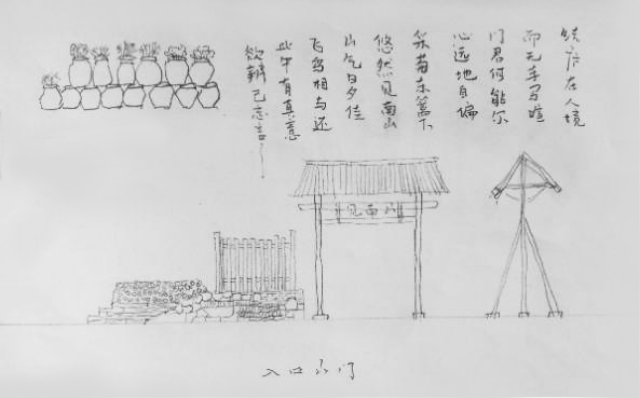 结庐在人境
而无车马喧
问君何能尔
心远地自偏
采菊东篱下
悠然见南山
山气日夕佳
飞鸟相与还
此中有真意
欲辨已忘言
见南山
入口 门